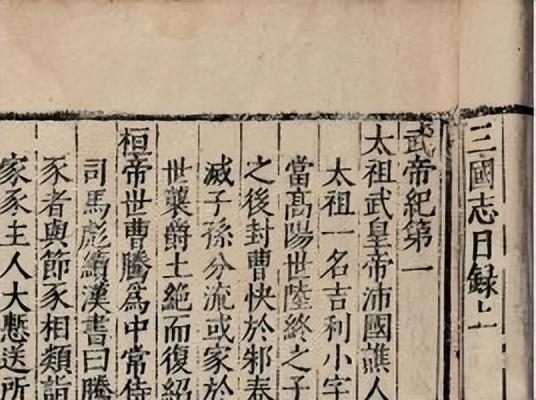 三國志目録上
武帝紀第一
太祖武皇帝沛國譙人
太祖一名吉利小字
當髙陽世陸終之子
之後封曹俠於邾春
滅子孫分流或家於
世襲爵土絶而復紹
桓帝世曹騰爲中常侍
司馬彪續漢書曰騰
豕者與節豕相類詣
家豕主人大慙送所